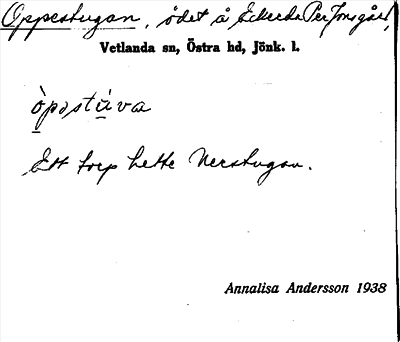 Oppestugan, ödet å Ekeda Per Jonsgård,
Vetlanda sn, Östra hd, Jönk. l.
òpəstúva
Ett torp hette Nerstugan.
Annalisa Andersson 1938